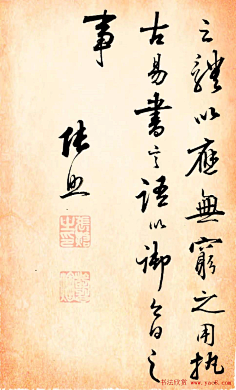 之體以應無窮之用執
古易書之語以御今日之
事
張照
书法欣赏
www.yac8.com